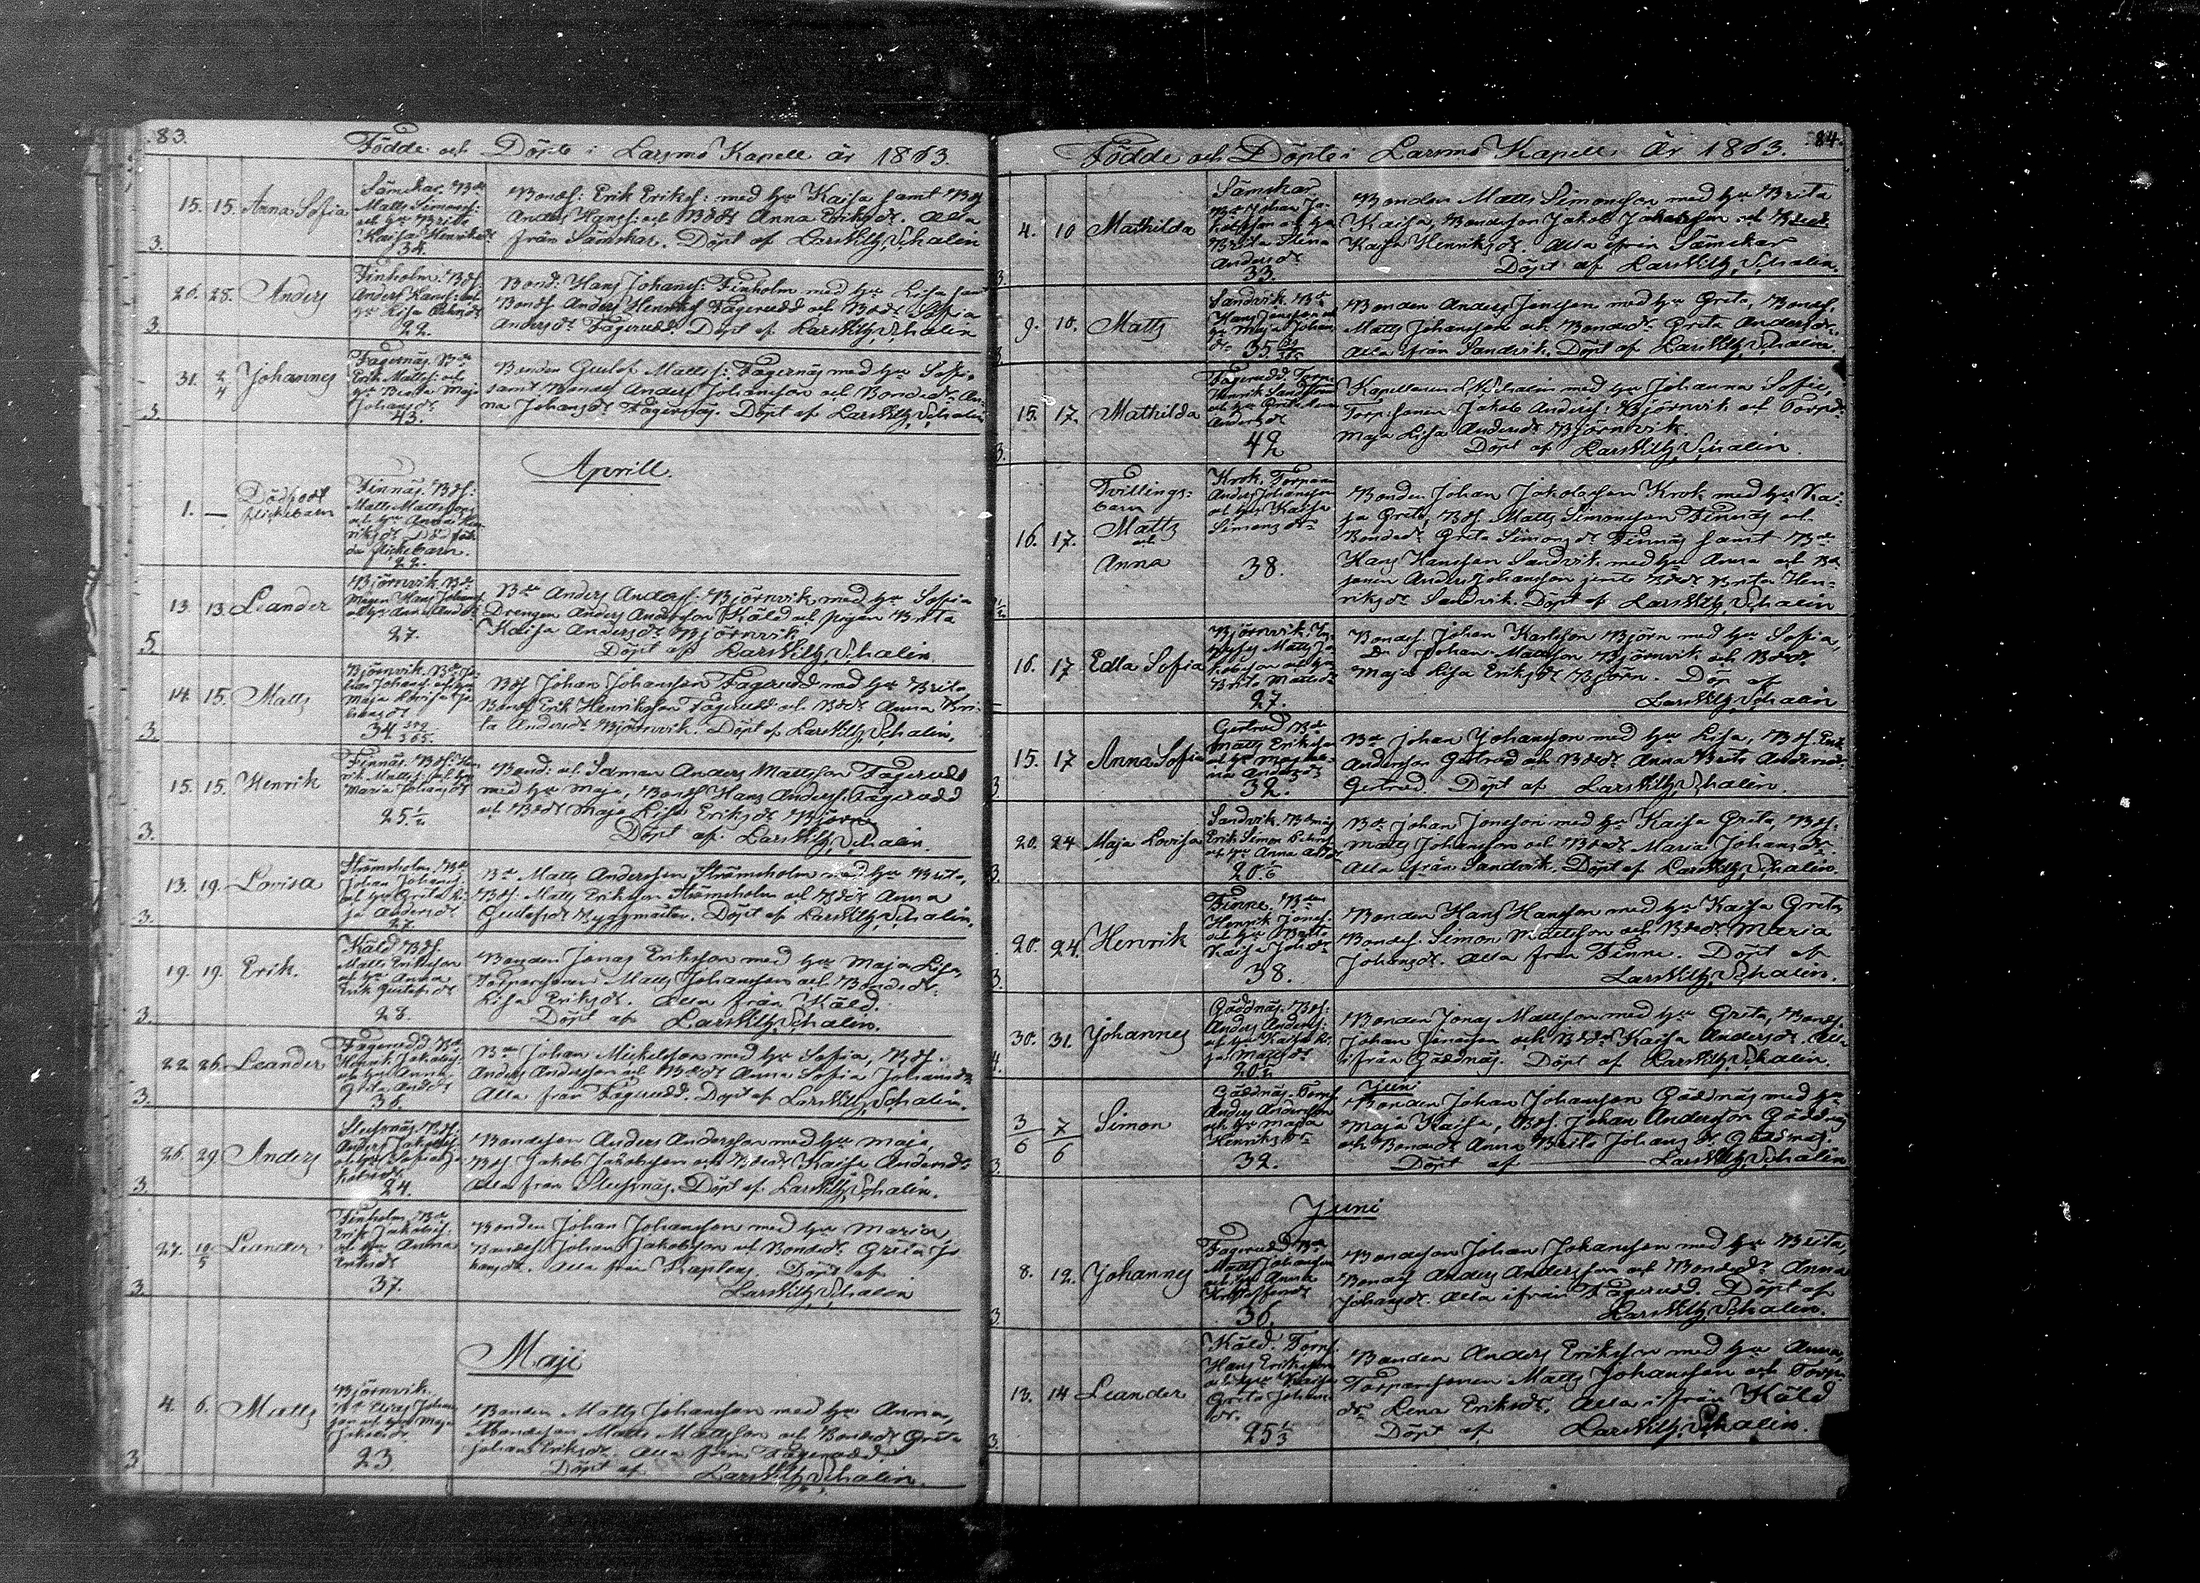 83.
Födde och Döpte i Larsmo Kapell år 1863.
15. 15. Anna Sofia
Sämskar. Bde
Matts Simonss:
och hu Brita
Kaisa Henriksdr
34.
Bondes: Erik Eriks: med hu Kaisa samt Bds
Anders Hanss: och Bdedr Anna Eriksdr. Alla
från Sämskar. Döpt af Lars Wilh. Schalin
3.
26. 28. Anders
Finholm. Bds.
Anders Hanss: och
hu Lisa
22.
Bond: Hans Johanss: Finholm med hu Lisa samt
Bonds Anders Henrikss Fagerudd och Bdedr Sofia
Andersdr Fagerudd. Döpt af Lars Wilh. Schalin
3.
31. 2/4 Johannes
Fagernäs. Bde
Erik Matts: och
hu Brita Maja
Johansdr
43.
Bonden Gustaf Matts: Fagernäs med hu Sofia
samt Bondes Anders Johansson och Bondedr An-
na Johansdr Fagernäs. Döpt af Lars Wilh. Schalin
3.
Aprill.
1. — Dödfödt
flickebarn
Finnäs. Bds:
Matts Mattsson
och hu Anna Hen
riksdr Dödföd
da flickebarn.
22.
13. 13 Leander
Björnvik. Bde
Hans Johanss
och hu Anna Andsdr
27.
Bde Anders Anderss: Björnvik med hu Sofia
Drengen Anders Andersson Käld och pigan Brita
Kaisa Andersdr Björnvik
Döpt af Lars Wilh. Schalin.
5
14. 15. Matts
Björnvik. Bde
Johanss och hu
Maja Lovisa Ja-
kobsdr
34
Bds Johan Johansson Fagerudd med hu Brita
Bonds Erik Henriksson Fagerudd och Bdedr Anna Bri-
ta Andersdr Björnvik. Döpt af Lars Wilh. Schalin.
3.
15. 15. Henrik
Finnäs. Bds: Hen
rik Matts: och hu
Maria Johansdr
25. 1/2
Bond: och Sexman Anders Mattsson Fagerudd
med hu Maja, Bonds Hans Anderss. Fagerudd
och Bdedr Maja Lisa Eriksdr Björn
Döpt af Lars Wilh. Schalin.
3.
13. 19. Lovisa
Strömsholm. Bde
Johan Johanss
och hu Greta Li-
sa Andersdr
27.
Bde Matts Andersson Strömsholm med hu Brita,
Bds. Matts Eriksson Strömsholm och Bdedr Anna
Gustafsdr Byggmästar. Döpt af Lars Wilh. Schalin.
3.
19. 19. Erik.
Käld Bds.
Matts Eriksson
och hu Anna
Erik Gustafsdr
28.
Bonden Jonas Eriksson med hu Maja Lisa,
Torparsonen Matts Johansson och Bondedr
Lisa Eriksdr. Alla från Käld.
Döpt af Lars Wilh. Schalin.
3.
22. 26. Leander
Fagerudd Bde
Henrik Jakobss
och hu Anna
Greta Andsdr
36.
Bde Johan Mickelsson med hu Sofia, Bds.
Anders Andersson och Bdedr Anna Sofia Johansdr
Alla från Fagerudd. Döpt af Lars Wilh. Schalin.
3.
26. 29. Anders
Bds.
Anders Jakobss
och hu Sofia Ja
kobsdr
24.
Bondeson Anders Andersson med hu Maja,
Bds Jakob Jakobsson och Bdedr Kaisa Andersdr
Döpt af Lars Wilh. Schalin.
3.
27. 10/5 Leander
Finholm, Bde
Erik Jakobss.
och hu Anna
Eriksdr
37.
Bonden Johan Johansson med hu Maria,
Bondes Johan Jakobsson och Bondedr Greta Jo
hansdr. Alla från Kaplens. Döpt af
Lars Wilh. Schalin
3.
Maji
4. 6. Matts
Björnvik.
Bde Elias Johans
son och hu Maja
Jakobsdr
23
Bonden Matts Johansson med hu Anna,
Bondeson Matts Mattsson och Bondedr Greta
Johan Eriksdr. Alla från Fagerudd.
Döpt af Lars Wilh. Schalin.
3.
84.
Födde och Döpte i Larsmo Kapell. År 1863.
4. 10 Mathilda
Sämskar
Bde Johan Ja-
kobsson och hu
Brita Stina
Andersdr
33.
Bonden Matts Simonsson med hu Brita
Kaisa, Bondeson Jakob Jakobsson och Bdedr
Kaisa Henriksdr. Alla ifrån Sämskar
Döpt af Lars Wilh. Schalin.
3.
9. 10. Matts
Sandvik. Bde
Hans Jonsson och
hu Maja Johans
dr
35
Bonden Anders Jonsson med hu Greta, Bondes.
Matts Johansson och Bondedr Greta Andersdr.
Alla ifrån Sandvik. Döpt af Lars Wilh. Schalin.
3.
15. 17. Mathilda
Fagerudd Torp.
Henrik Sandström
och hu Greta Lena
Andersdr
42
Kapellanen L. W. Schalin med hu Johanna Sofie,
Torp: sonen Jakob Anderss: Björnvik och Torpdr
Maja Lisa Andersdr Björnvik.
Döpt af Lars Wilh. Schalin.
3.
16. 17. Tvillings-
barn
Matts
och
Anna
Krok. Torparen
Anders Johansson
och hu Kaisa
Simonsdr
38.
Bonden Johan Jakobsson Krok med hu Kai-
sa Greta, Bds Matts Simonsson Finnäs och
Bondedr Greta Simonsdr Finnäs samt Bde
Hans Hansson Sandvik med hu Anna och Bde
sonen Anders Johansson jemte Bdedr Brita Hen-
riksdr Sandvik. Döpt af Lars Wilh. Schalin
16. 17 Edla Sofia
Björnvik. In-
hyses Matts Ja
kobsson och hu
Brita Mattsdr
27.
Bondes. Johan Karlsson Björn med hu Sofia,
Dr Johan Mattsson Björnvik och Bdedr
Maja Lisa Eriksdr Björn. Döpt af
Lars Wilh. Schalin
15. 17 Anna Sofia
Gertrud Bde
Matts Eriksson
och hu Maja Le-
na Andersdr
32.
Bde Johan Johansson med hu Lisa, Bds. Erik
Andersson Gertrud och Bdedr Anna Brita Andersdr
Gertrud. Döpt af Lars Wilh. Schalin.
3.
20. 24 Maja Lovisa
Sandvik. Bdemåg
Erik Simon
och hu Anna
Bde Johan Jonsson med hu Kaisa Greta, Bds.
Matts Johansson och Bdedr Maria Johansdr
Alla ifrån Sandvik. Döpt af Lars Wilh. Schalin.
3.
20. 24. Henrik
Finne. Bden
Henrik Jonss.
och hu Brita
Kaisa Johsdr
38.
Bonden Hans Hansson med hu Kaisa Greta,
Bondes. Simon Mattsson och Bdedr Maria
Johansdr. Alla från Finne. Döpt af
Lars Wilh. Schalin.
3.
30. 31. Johannes
Gäddnäs. Bds.
Anders Anderss.
och hu Kaisa Li-
sa Mattsdr
Bonden Jonas Mattsson med hu Greta, Bonds.
Johan Jonasson och Bdedr Kaisa Andersdr. Alla
ifrån Gäddnäs. Döpt af Lars Wilh. Schalin.
4.
Juni
3/6 7/6 Simon
Gäddnäs. Torps
Anders Andersson
och hu Maja
Henriksdr
32.
Bonden Johan Johansson Gäddnäs med hu
Maja Kaisa, Bds. Johan Andersson Gäddnäs
och Bondedr Anna Brita Johansdr Gäddnäs.
Döpt af Lars Wilh. Schalin
3.
Juni
8. 12. Johannes
Fagerudd Bde
Matts Johansson
och hu Anna
Kristoffersdr
36.
Bondeson Johan Johansson med hu Brita,
Bondes Anders Andersson och Bondedr Anna
Johansdr. Alla ifrån Fagerudd. Döpt af
Lars Wilh. Schalin.
3.
13. 14 Leander
Käld. Torps.
Hans Eriksson
och hu Kaisa
Greta Johans
dr.
25 1/3
Bonden Anders Eriksson med hu Anna,
Torparesonen Matts Johansson och Torpare
dr Lena Eriksdr. Alla ifrån Käld
Döpt af Lars Wilh. Schalin.
3.